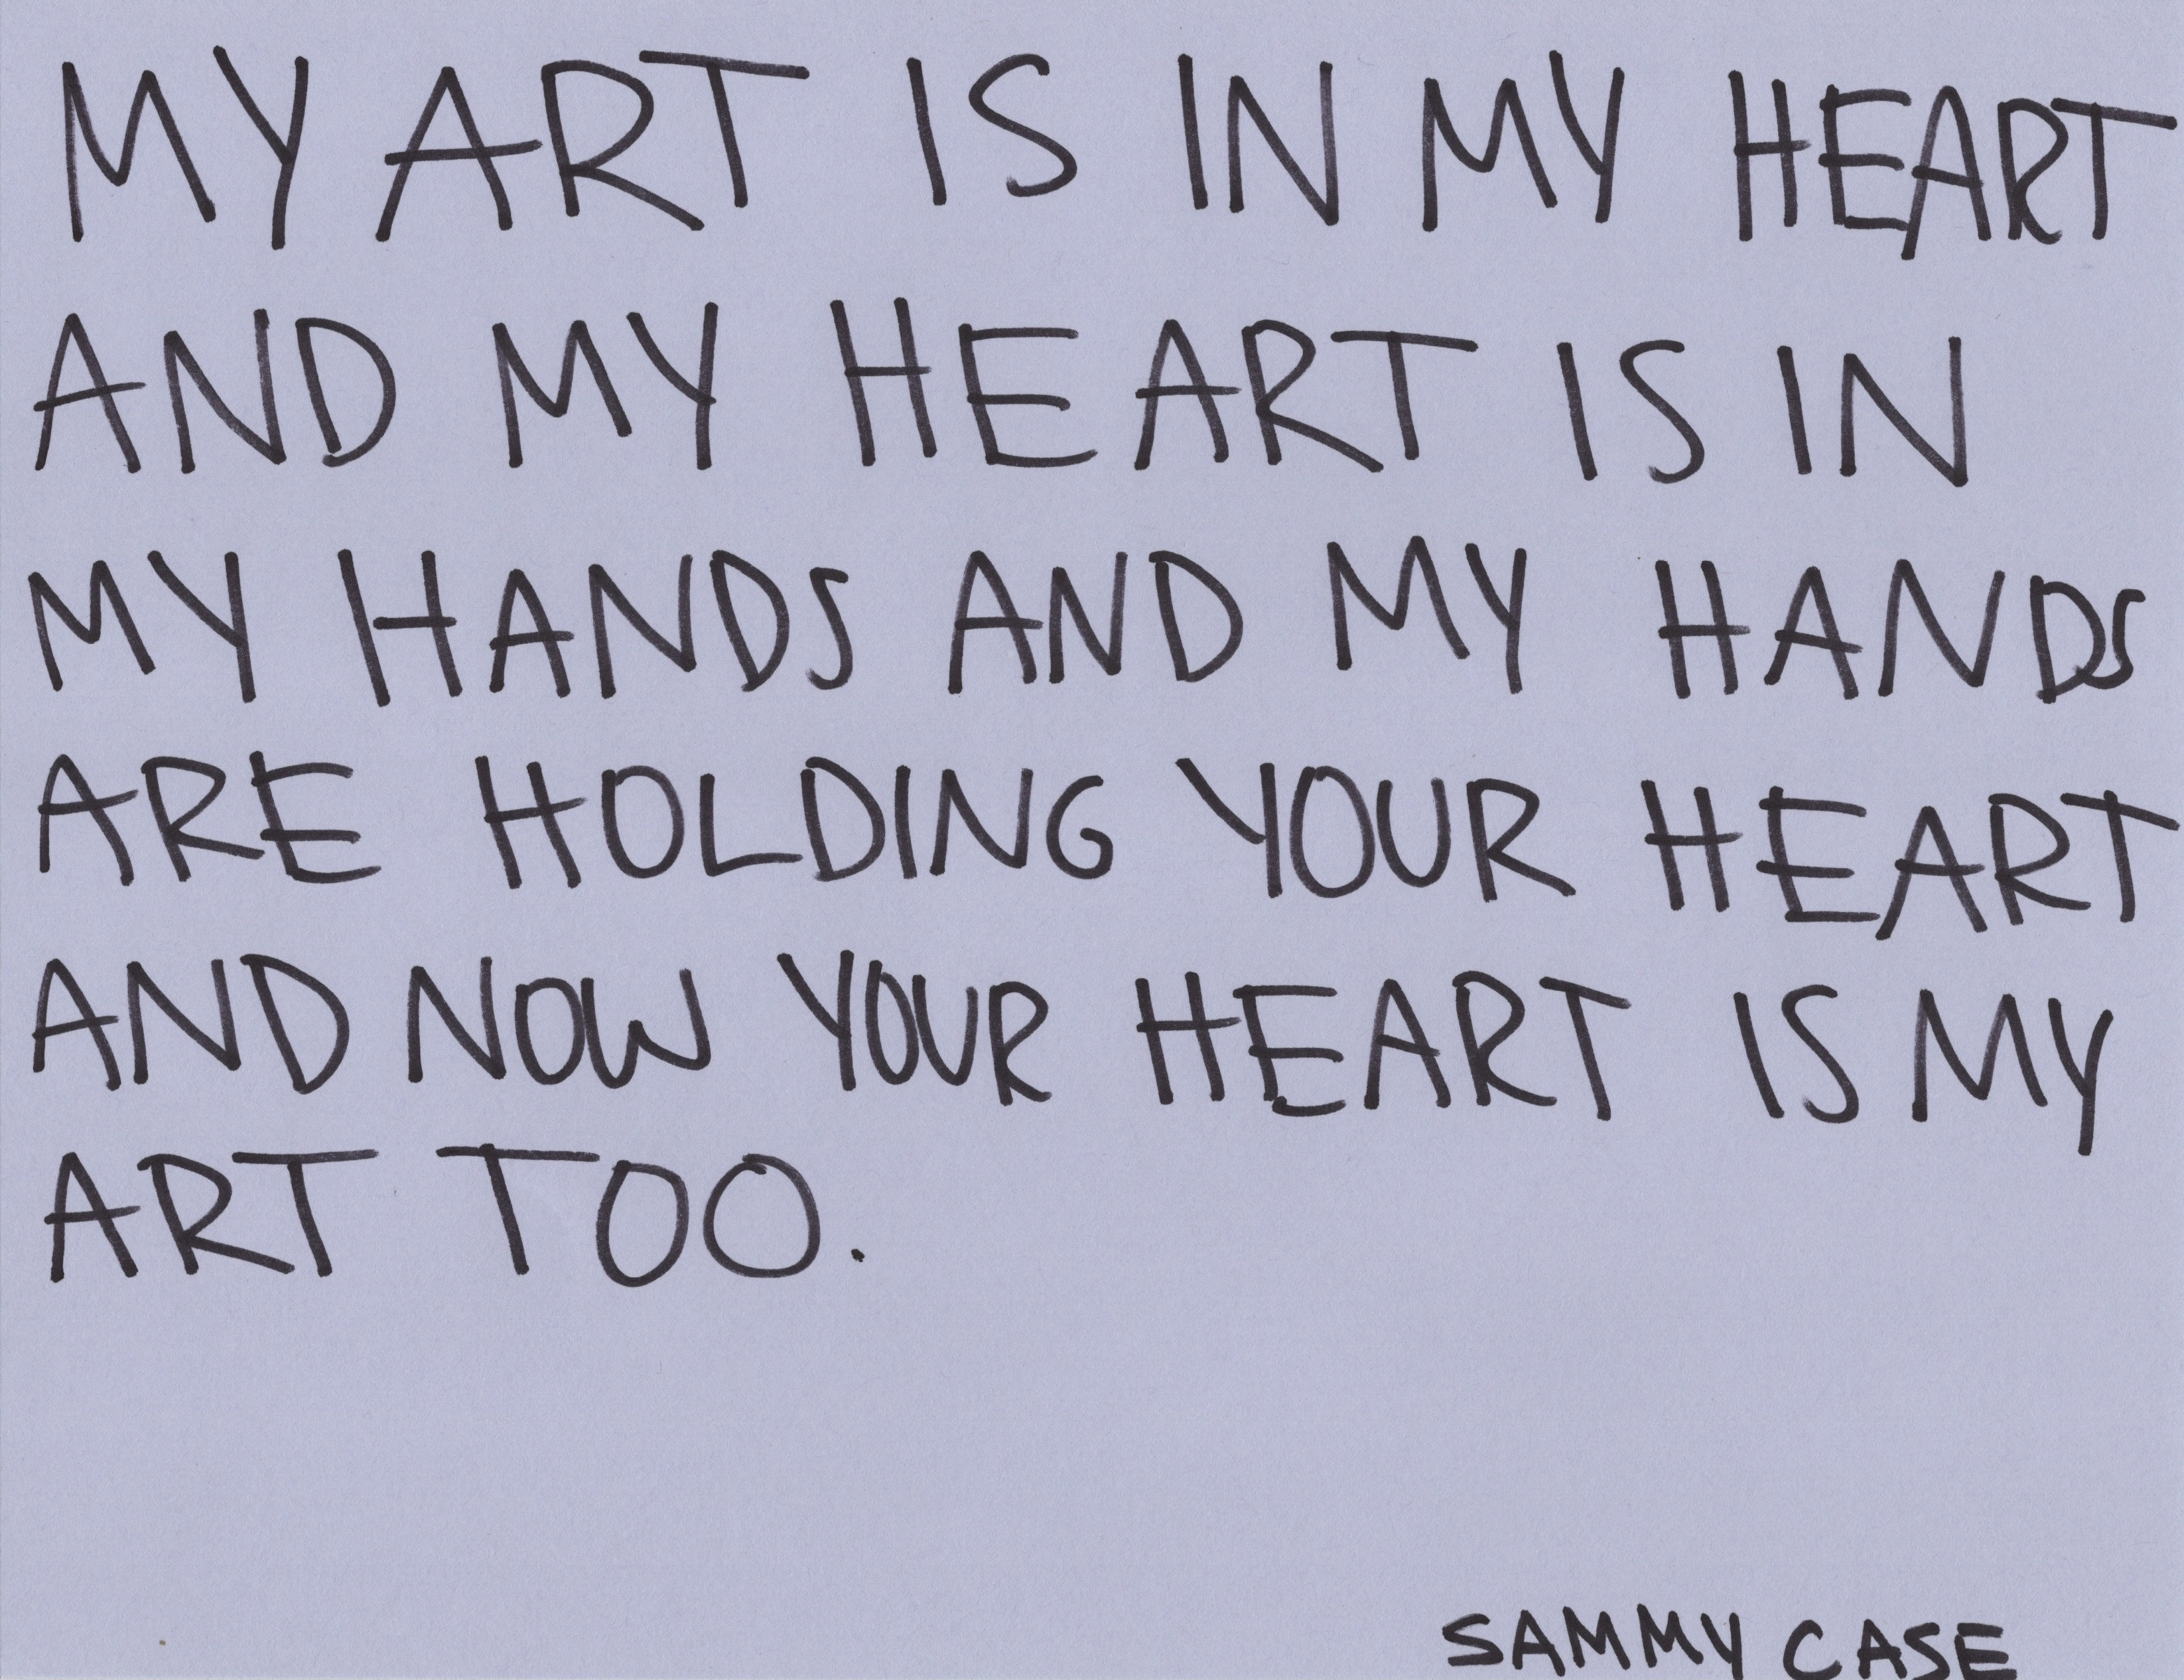 MY ART IS IN MY HEART
AND MY HEART IS IN
MY HANDS AND MY HANDS
ARE HOLDING YOUR HEART
AND NOW YOUR HEART IS MY
ART TOO.
SAMMY CASE